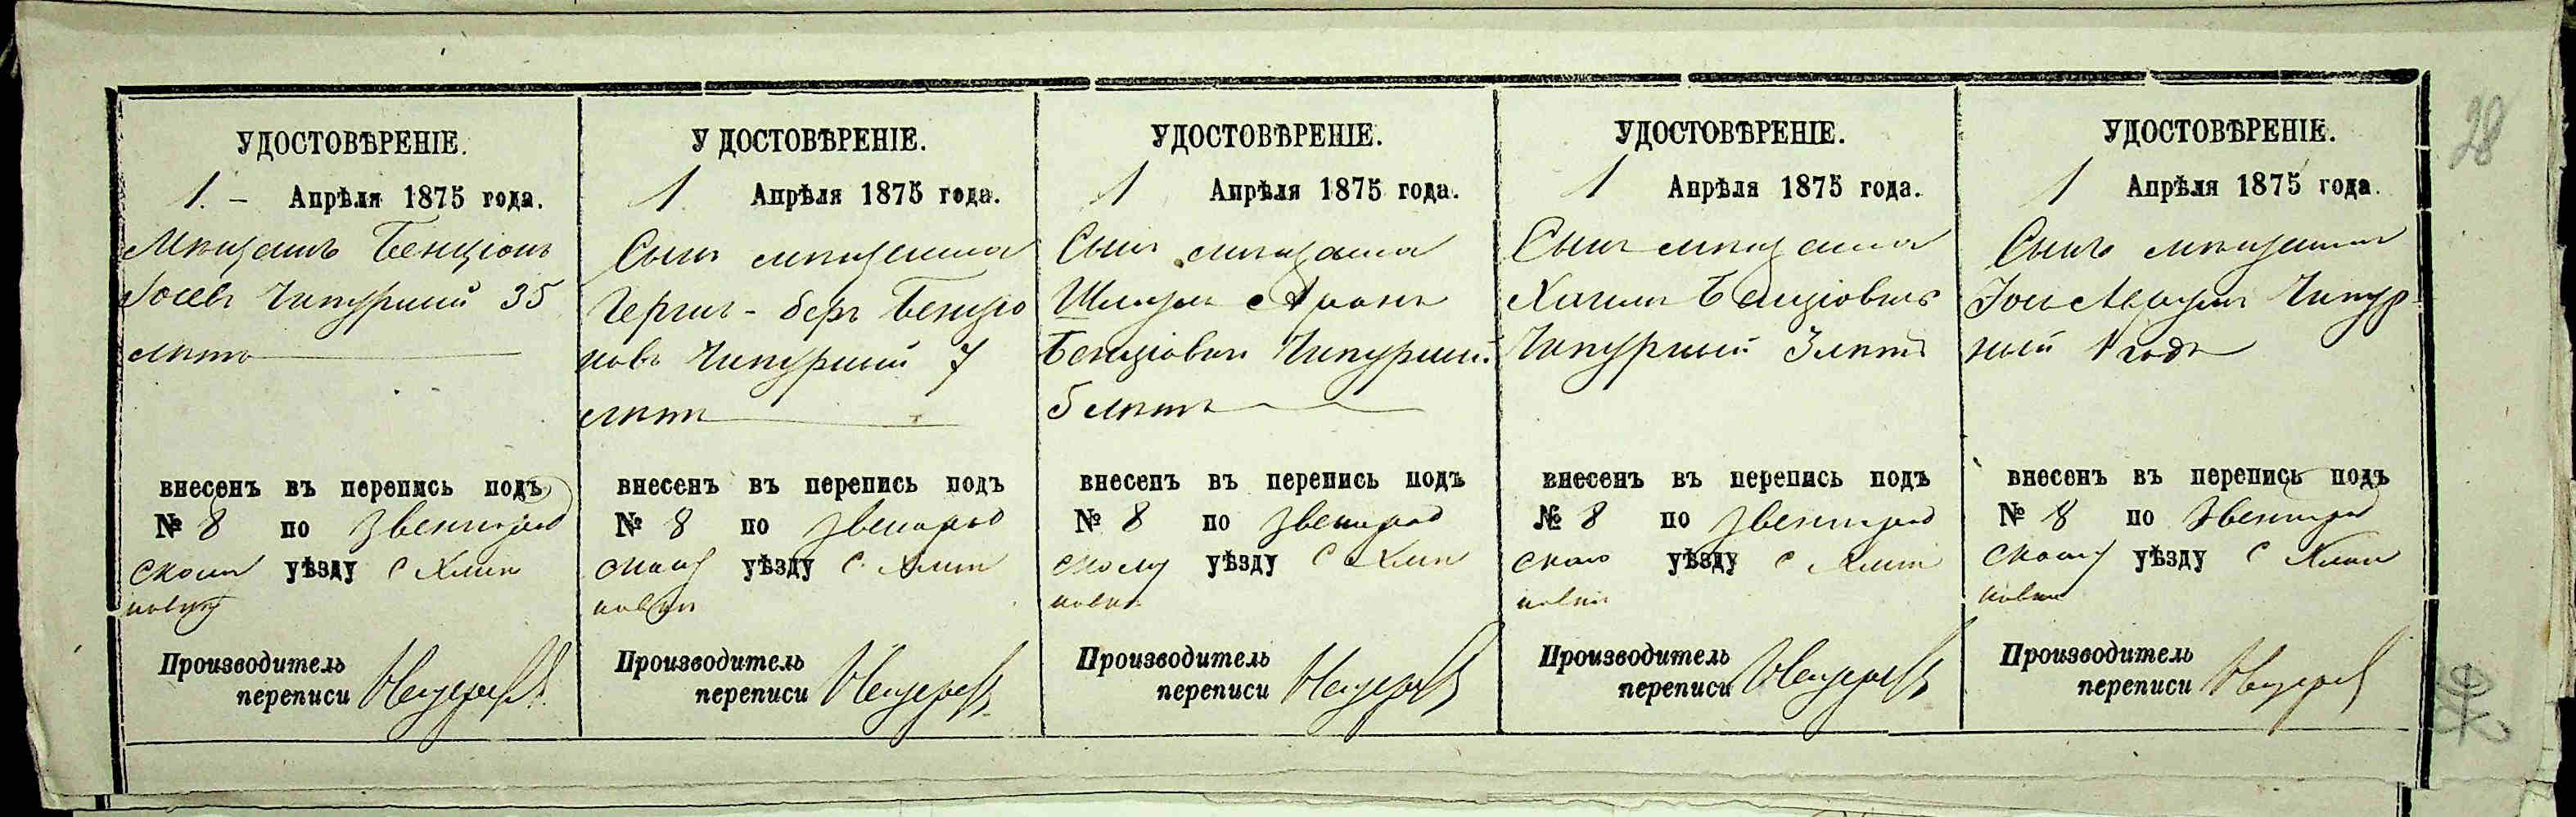 УДОСТОВѢРЕНІЕ.
1. – Апрѣля 1875 года.
Мѣщанинъ Бенціонъ
Іосевъ Чипурный 35
лѣтъ
внесенъ въ перепись подъ
№ 8 по Звенигород
скому уѣзду с Хлип
новку
Производитель
переписи
У ДОСТОВѢРЕНІЕ.
1 Апрѣля 1875 года.
Сынъ мѣщанина
Гершъ-беръ Бенціо
новъ Чипурный 7
лѣтъ
внесенъ въ перепись подъ
№ 8 по Звенигород
скому уѣзду с. Хлип
новки
Производитель
переписи
УДОСТОВѢРЕНІЕ.
1 Апрѣля 1875 года.
Сынъ мѣщанина
Шлиома Аронъ
Бенціовичъ Чипурный
5 лѣтъ
внесенъ въ перепись подъ
№ 8 по Звенигород
скому уѣзду с Хлип
новки
Производитель
переписи
УДОСТОВѢРЕНІЕ.
1 Апрѣля 1875 года.
Сынъ мѣщанина
Хаимъ Бенціовичъ
Чипурный 3 лѣтъ
внесенъ въ перепись подъ
№ 8 по Звенигород
ском уѣзду с Хлип
новки
Производитель
переписи
УДОСТОВѢРЕНІЕ.
1 Апрѣля 1875 года.
Сынъ мѣщанина
Чипур
ный 1 годъ
внесенъ въ перепись подъ
№ 8 по Звенигород
скому уѣзду с Хлип
новки
Производитель
переписи
28